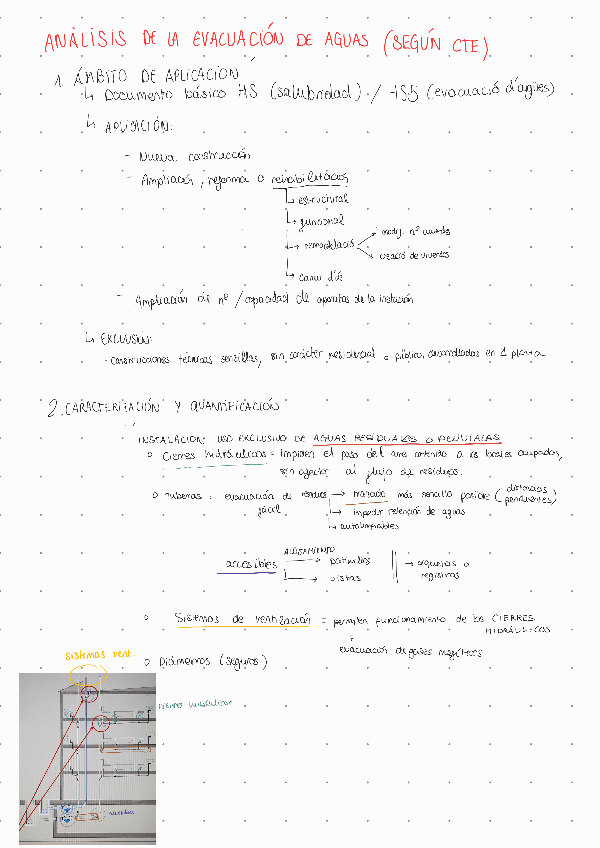 ANÁLISIS DE LA EVACUACIÓN DE AGUAS (SEGÚN CTE)
1. ÁMBITO DE APLICACIÓN
↳ Documento básico HS (salubridad) / HS5 (evacuació d'aigües)
↳ APLICACIÓN:
- Nueva construcción
- Ampliación, reforma o rehabilitación
↳ estructural
↳ funcional
↳ remodelació
modif. nº vivendes
creació de vivendes
↳ canvi d'ús
- Ampliación de nº / capacidad de aparatos de la instalación
↳ EXCLUSIÓN:
- construcciones técnicas sencillas, sin carácter residencial o público, desarrolladas en 1 planta
2. CARACTERIZACIÓN Y QUANTIFICACIÓN
INSTALACIÓN: USO EXCLUSIVO DE AGUAS RESIDUALES O PLUVIALES
o Cierres hidráulicos = impiden el paso del aire contenido a los locales ocupados,
sin afectar al flujo de residuos.
o Tuberías: evacuación de residuos fácil → trazado más sencillo posible (distancias pendientes)
↳ impedir retención de aguas
↳ autolimpiables
accesibles
ALOJAMIENTO
→ patinillos
→ vistas
→ arquetas o registros
o Sistemas de ventilación = permiten funcionamiento de los CIERRES HIDRÁULICOS
+
evacuación de gases mefíticos
o Diámetros (seguros)
sistemas vent.
cierres hidráulicos